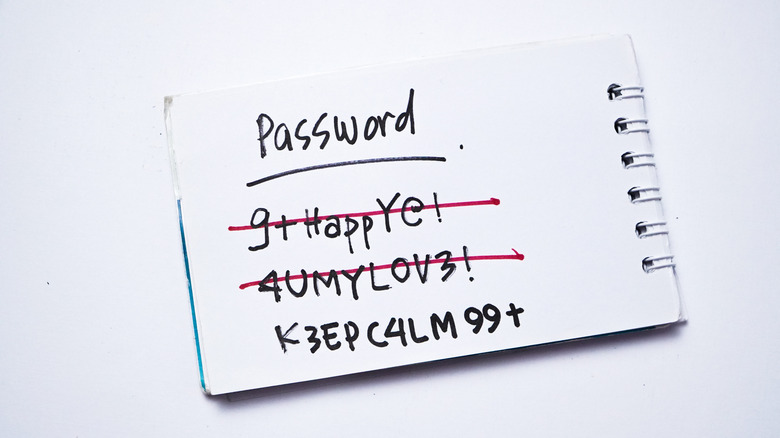 Password
9+HappY@!
4UMYLOV3!
K3EPC4LM99+